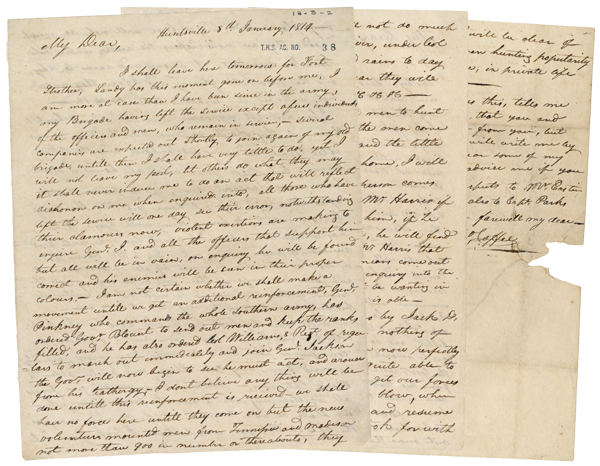 12-3-2
Huntsville 8th January, 1814
T.H.S. AC. NO. 38
My Dear,
I shall leave here tomorrow for Fort
Strother, Sandy has this moment gone on before me, I
am more at ease than I have been since in the army,
my Brigade having left the service except a few individuals
of the officers and men, who remain in service, – several
companies are expected out shortly to join again of my old
brigade, untill then I shall have very little to do, yet I
will not leave my post, let others do what they may
it shall never induce me to do an act that will reflect
dishonor on me when enquired into, all those who have
left the service will one day see their error, notwithstanding
their clamours now, violent exertions are making to
injure Genl J. and all the officers that support him
but all will be in vain, on enquiry he will be found
correct and his enemies will be seen in their proper
colours, – I am not certain whether we shall make a
movement untill we get an additional reinforcement, Genl
Pinkney who commands the whole Southern army, has
ordered Govr Blount to send out men and keep the ranks
filled, and he has also ordered Col Williams Regt of regu-
lars to march out immediately and join Genl Jackson
the Govr will now begin to see he must act, and arouse
from his leathergy, – I dont believe any thing will be
done untill this reinforcement is received – we shall
have no force here untill they come on but the new
volunteers mounted men from Tennessee and Madison
not more than 900 in number or thereabouts, they
not do much
under Col
rains to day
they will
men to hunt
the men come
and the little
home, I will
person comes
Mr Harris if
him, if he
he will find
Mr Harris that
means come out
enquiry into the
be wanting in
is able –
by Jack D,
nothing of
now perfectly
quite able to
get our forces
blow, when
and resume
look for with
will be clear of
hunting popularity
in private life
this, tells me
that you and
grow your, but
will write me by
or some of my
advise me if you
respects to Mr Eastin
also to Capt Parks
farewell my dear –
Coffee